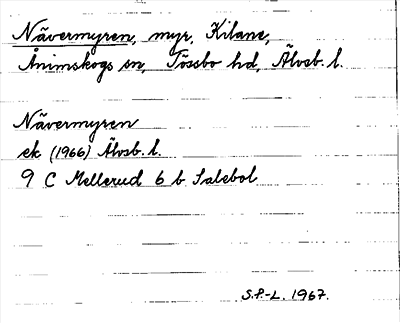 Nävermyren, myr, Kilane,
Ånimskogs sn, Tössbo hd, Älvsb. l.
Nävermyren
ek (1966) Älvsb. l.
9 C Mellerud 6 b Salebol
S.P.-L. 1967.